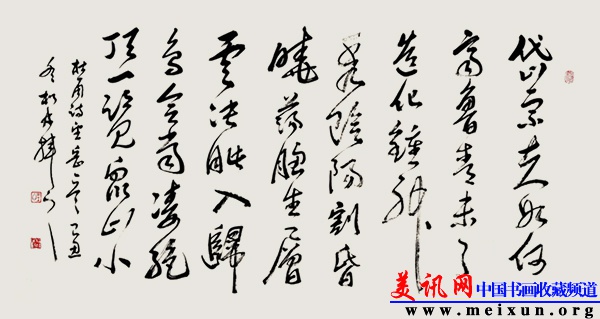 岱宗夫如何
齊魯青未了
造化鍾神
秀陰陽割昏
曉蕩胸生層
雲決眦入歸
鳥會當凌絶
頂一覽衆山小
杜甫詩望岳一首
美讯网 中国书画收藏频道
www.meixun.org